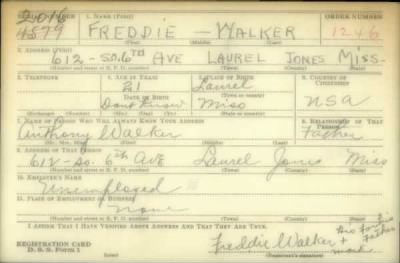 SERIAL NUMBER 1. NAME (Print) ORDER NUMBER
2046
4579 FREDDIE — WALKER 1246
2. ADDRESS (Print)
612 - SO. 6TH AVE LAUREL JONES MISS.
(Number and street or R. F. D. number) (Town) (County) (State)
3. TELEPHONE 4. AGE IN YEARS 5. PLACE OF BIRTH 6. COUNTRY OF CITIZENSHIP
21 Laurel
DATE OF BIRTH (Town or county)
Dont Know Miss USA
(Exchange) (Number) (Mo.) (Day) (Yr.) (State or country)
7. NAME OF PERSON WHO WILL ALWAYS KNOW YOUR ADDRESS 8. RELATIONSHIP OF THAT PERSON
Anthony Walker Father
(Mr., Mrs., Miss) (First) (Middle) (Last)
9. ADDRESS OF THAT PERSON
612 - So. 6th Ave Laurel Jones Miss
(Number and street or R. F. D. number) (Town) (County) (State)
10. EMPLOYER'S NAME
Unemployed
11. PLACE OF EMPLOYMENT OR BUSINESS
None
(Number and street or R. F. D. number) (Town) (County) (State)
I AFFIRM THAT I HAVE VERIFIED ABOVE ANSWERS AND THAT THEY ARE TRUE.
REGISTRATION CARD
D. S. S. Form 1
Freddie Walker + Father
mark